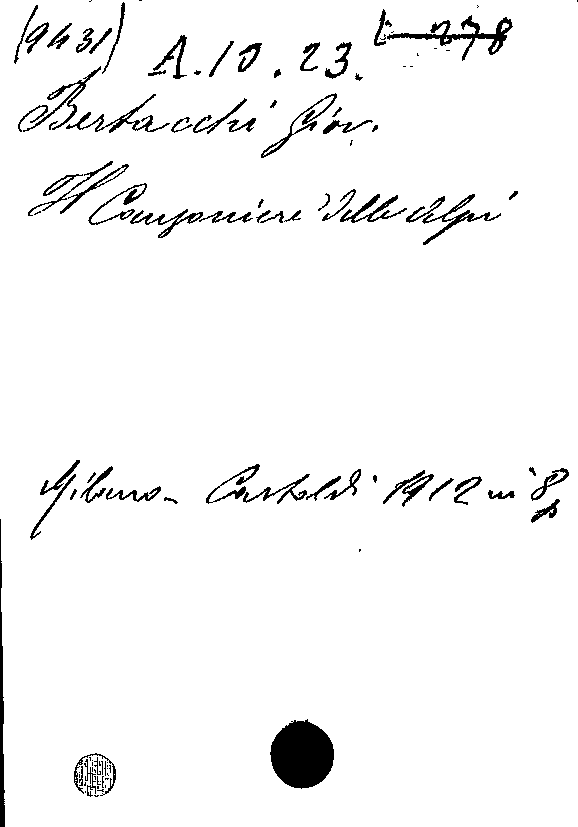 (9431) A.10.23.
Bertacchi Giov.
Il Canzoniere delle Alpi
Milano - Castoldi 1912 in 8